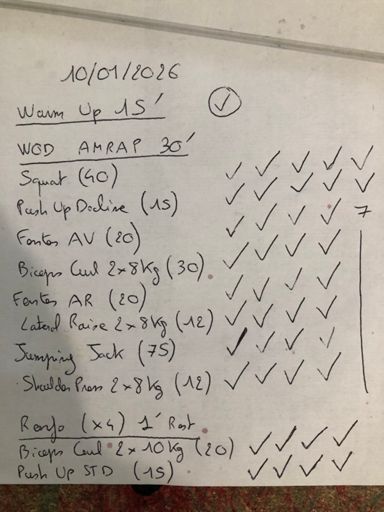 10/01/2026
Warm Up 15' ✓
WOD AMRAP 30'
Squat (40) ✓ ✓ ✓ ✓ ✓
Push Up Decline (15) ✓ ✓ ✓ ✓ ✓
Fentes AV (20) ✓ ✓ ✓ ✓ 7
Biceps Curl 2x8Kg (30) ✓ ✓ ✓ ✓
Fentes AR (20) ✓ ✓ ✓ ✓
Lateral Raise 2x8Kg (12) ✓ ✓ ✓ ✓
Jumping Jack (75) ✓ ✓ ✓ ✓
Shoulder Press 2x8kg (12) ✓ ✓ ✓ ✓
Renfo (x4) 1' Rest
Biceps Curl 2x10Kg (20) ✓ ✓ ✓ ✓
Push Up STD (15) ✓ ✓ ✓ ✓